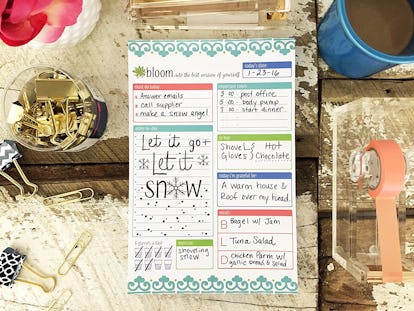 bloom into the best version of yourself
today's date
1-23-16
must do today
Answer emails
call supplier
make a snow angel
3:00 post office
5:00 body pump
7:00 start dinner
Let it go +
Let it
SNOW
to buy
Shovel & Hot
Gloves & Chocolate
today i'm grateful for
A warm house &
Roof over my head.
meals
B Bagel w/ Jam
L Tuna Salad
D Chicken Parm w/
garlic bread & salad
8 glasses a day
exercise
shoveling
snow